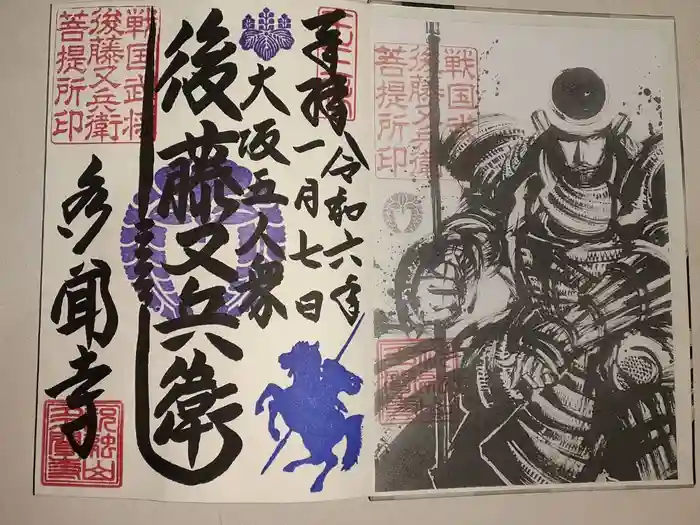 奉拝
令和六年
一月七日
大坂五人衆
後藤又兵衛
戦国武将
後藤又兵衛
菩提所印
多聞寺
戦国武将
後藤又兵衛
菩提所印